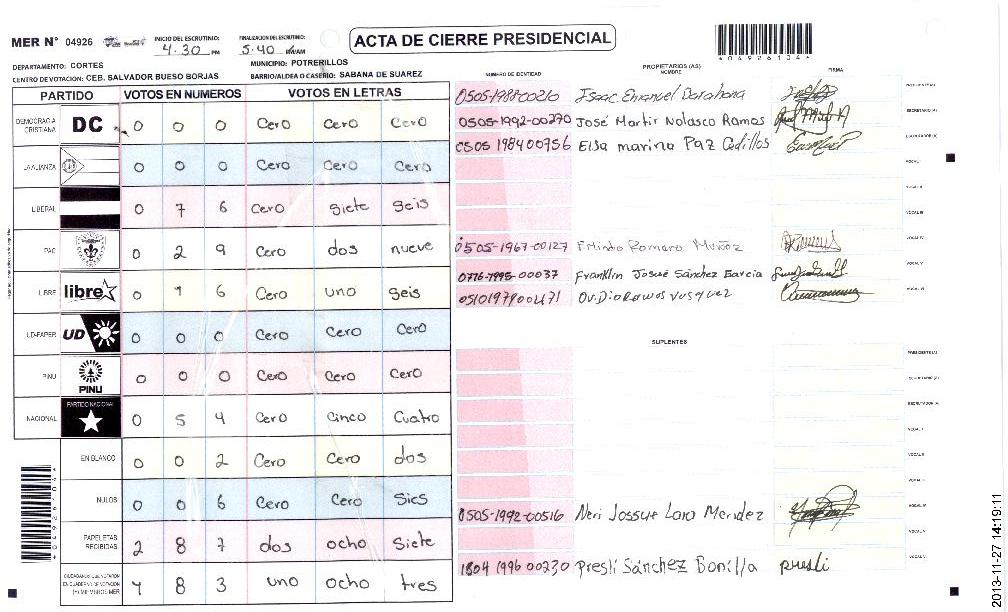 MER N° 04926
INICIO DEL ESCRUTINIO: 4:30 PM
FINALIZACION DEL ESCRUTINIO: 5:40 PM/AM
ACTA DE CIERRE PRESIDENCIAL
*04926104*
DEPARTAMENTO: CORTES
MUNICIPIO: POTRERILLOS
CENTRO DE VOTACION: CEB. SALVADOR BUESO BORJAS
BARRIO/ALDEA O CASERIO: SABANA DE SUAREZ
NÚMERO DE IDENTIDAD
PROPIETARIOS (AS)
NOMBRE
FIRMA
PARTIDO VOTOS EN NUMEROS VOTOS EN LETRAS
DEMOCRACIA CRISTIANA DC 0 0 0 Cero Cero Cero
LA ALIANZA 0 0 0 Cero Cero Cero
LIBERAL 0 7 6 Cero Siete Seis
PAC 0 2 9 Cero dos nueve
LIBRE libre 0 1 6 Cero uno Seis
UD-FAPER UD 0 0 0 Cero Cero Cero
PINU PINU 0 0 0 Cero Cero Cero
NACIONAL PARTIDO NACIONAL 0 5 4 Cero Cinco Cuatro
EN BLANCO 0 0 2 Cero Cero dos
NULOS 0 0 6 Cero Cero Sies
PAPELETAS RECIBIDAS 2 8 7 dos ocho Siete
CIUDADANOS QUE VOTARON EN CUADERNO DE VOTACION (+) MIEMBROS MER 1 8 3 uno ocho tres
Isaac Emanuel Barahona
SECRETARIO (A)
0505-1992-00270 José Martir Nolasco Ramos
ESCRUTADOR (A)
0505 1984 00756 Elsa marina Paz Cedillos
VOCAL I
VOCAL II
VOCAL III
VOCAL IV
0505-1967-00127 Romero Muñoz
VOCAL V
Franklin Josué Sánchez Garcia
SUPLENTES
PRESIDENTE (A)
SECRETARIO (A)
ESCRUTADOR (A)
VOCAL I
VOCAL II
VOCAL III
VOCAL IV
0505-1992-00516 Neri Jossue Lara Mendez
VOCAL V
1804 1996 00230 Presli Sánchez Bonilla presli
VOCAL VI
*04926104*
2013-11-27 14:19:11